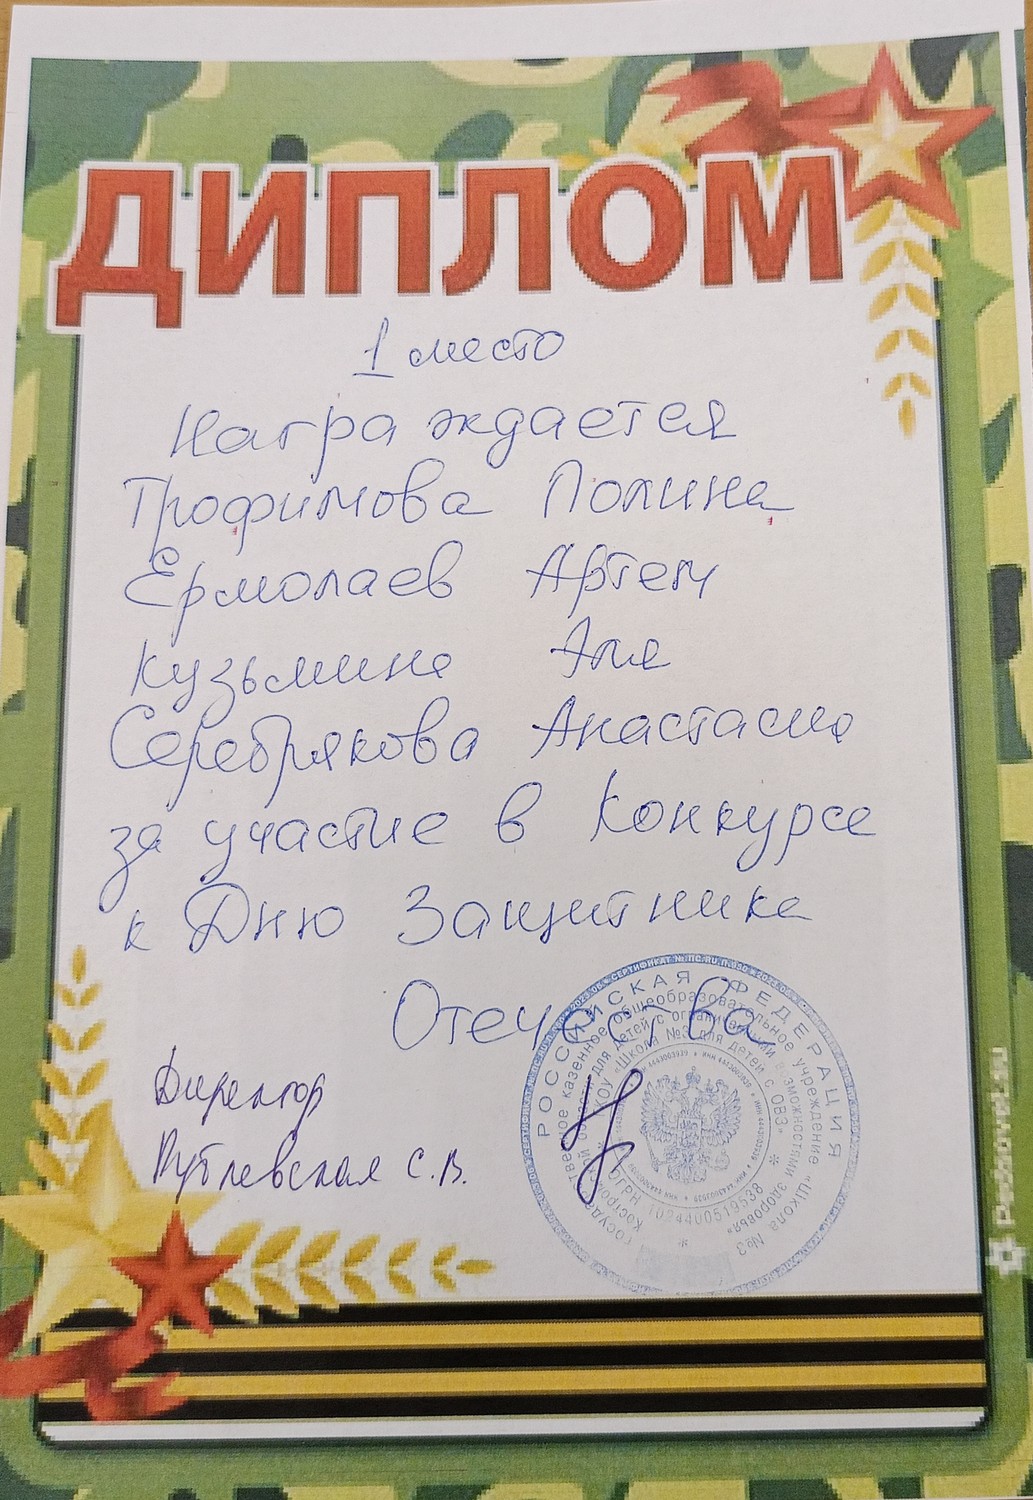 ДИПЛОМ
1 место
Награждается
Трофимова Полина
Ермолаев Артем
Кузьмина Аля
Серебрякова Анастасия
за участие в Конкурсе
к Дню Защитника
Отечества
Директор
Рублевская С.В.
РОССИЙСКАЯ ФЕДЕРАЦИЯ
общеобразовательное учреждение «Школа №3
для детей с ограниченными возможностями здоровья»
«Школа №3 для детей с ОВЗ»
ОГРН 1024400519538
Pedsovet.su